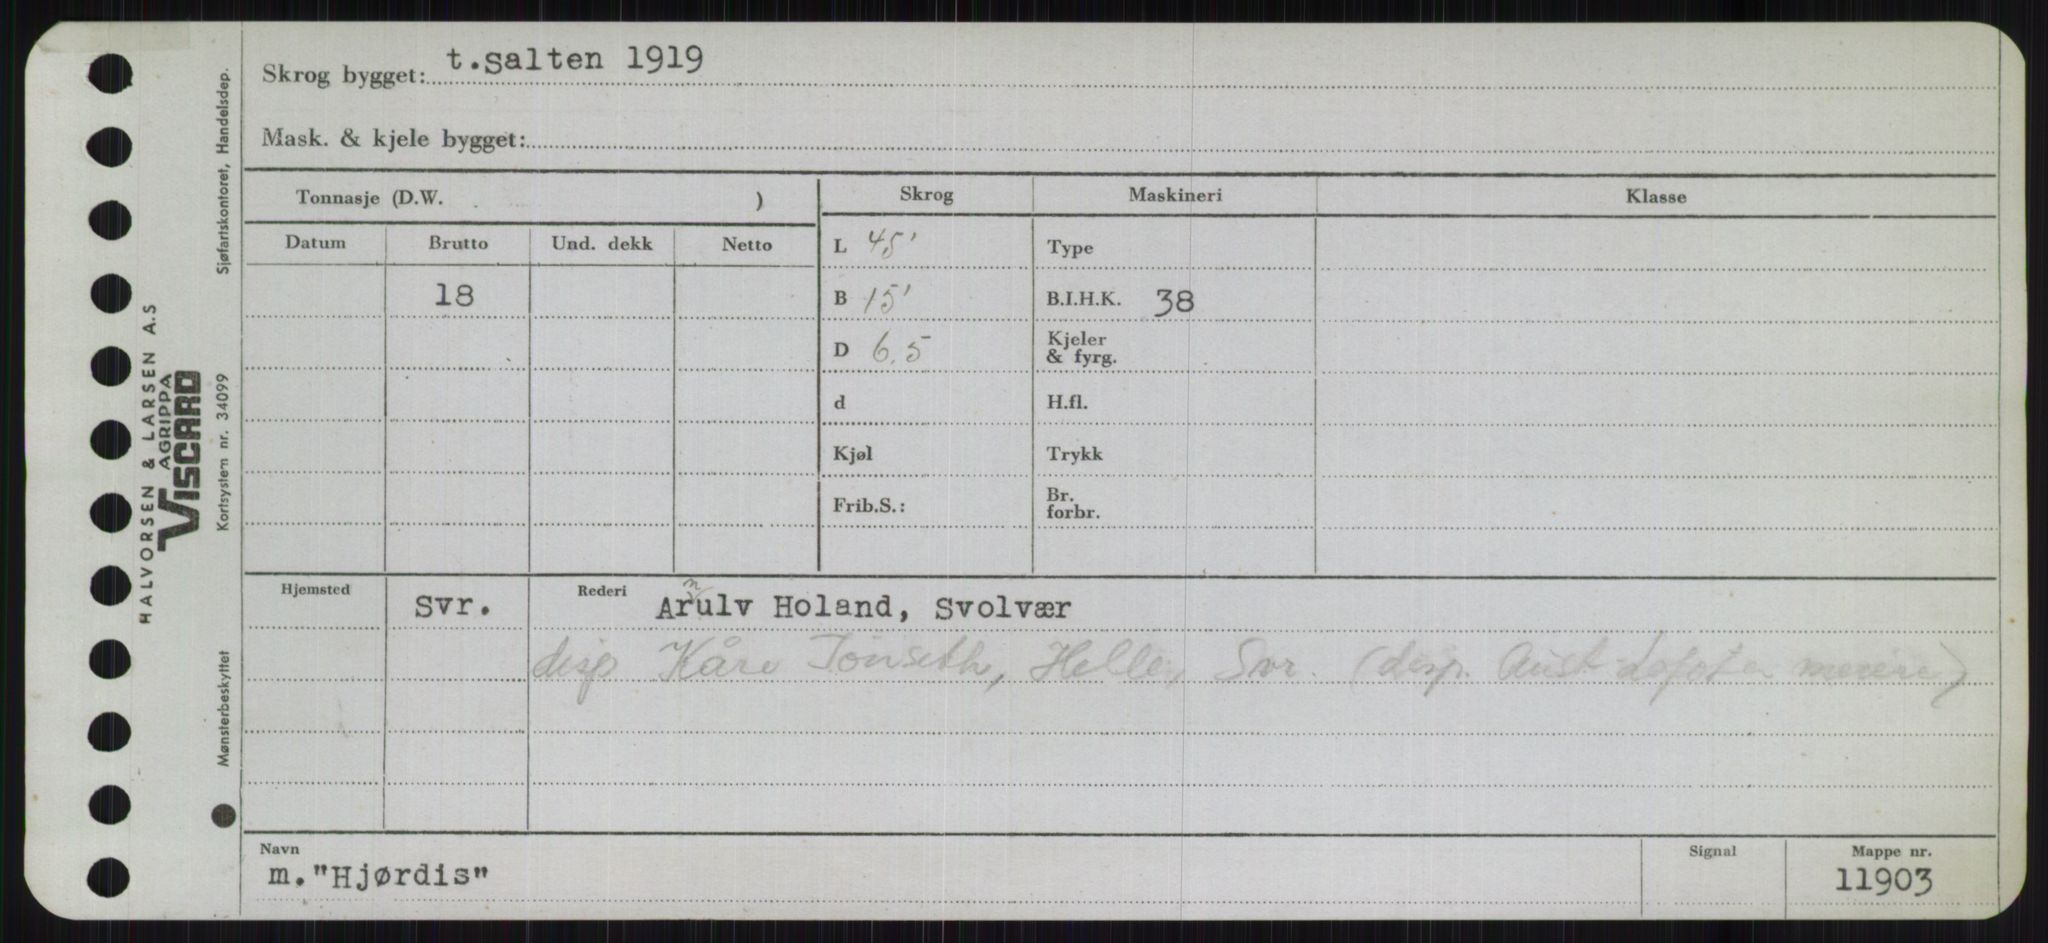 Skrog bygget: t.salten 1919
Mask. & kjele bygget:
Tonnasje (D.W. )
Skrog
Maskineri
Klasse
Datum
Brutto
Und. dekk
Netto
L 45'
Type
18
B 15'
B.I.H.K. 38
D 6.5
Kjeler
& fyrg.
d
H.fl.
Kjøl
Trykk
Frib.S.:
Br.
forbr.
Hjemsted
Svr.
Rederi
n
Arulv Holand, Svolvær
disp Kåre Jønseth, Helle, Svr. (disp. Aust-Lofoten
Navn
m."Hjørdis"
Signal
Mappe nr.
11903
HALVORSEN & LARSEN A.S
AGRIPPA
VISCARD
Mønsterbeskyttet
Kortsystem nr. 34099
Sjøfartskontoret, Handelsdep.